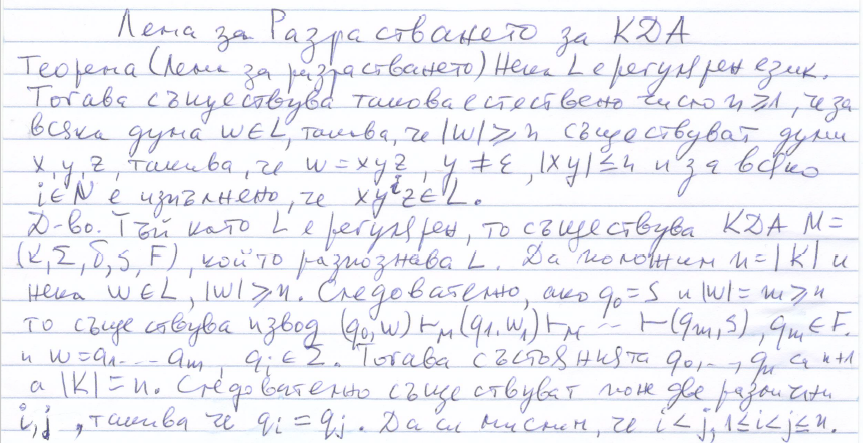 Лема за Разрастването за КДА
Теорема (Лема за разрастването) Нека L е регулярен език.
Тогава съществува такова естествено число n ≥ 1, че за
всяка дума w ∈ L, такава, че |w| ≥ n съществуват думи
x, y, z, такива, че w = xyz, y ≠ ε, |xy| ≤ n и за всяко
i ∈ N е изпълнено, че xyⁱz ∈ L.
Д-во. Тъй като L е регулярен, то съществува КДА M =
(K, Σ, δ, s, F), който разпознава L. Да положим n = |K| и
нека w ∈ L, |w| ≥ n. Следователно, ако q₀ = s и |w| = m ≥ n
то съществува извод (q₀, w) ⊢ₘ (q₁, w₁) ⊢ₘ ... ⊢ (qₘ, ε), qₘ ∈ F.
и w = a₁ ... aₘ, aᵢ ∈ Σ. Тогава състоянията q₀, .., qₙ са n+1
а |K| = n. Следователно съществуват поне две различни
i, j, такива че qᵢ = qⱼ. Да си мислим, че i < j, 1 ≤ i < j ≤ n.